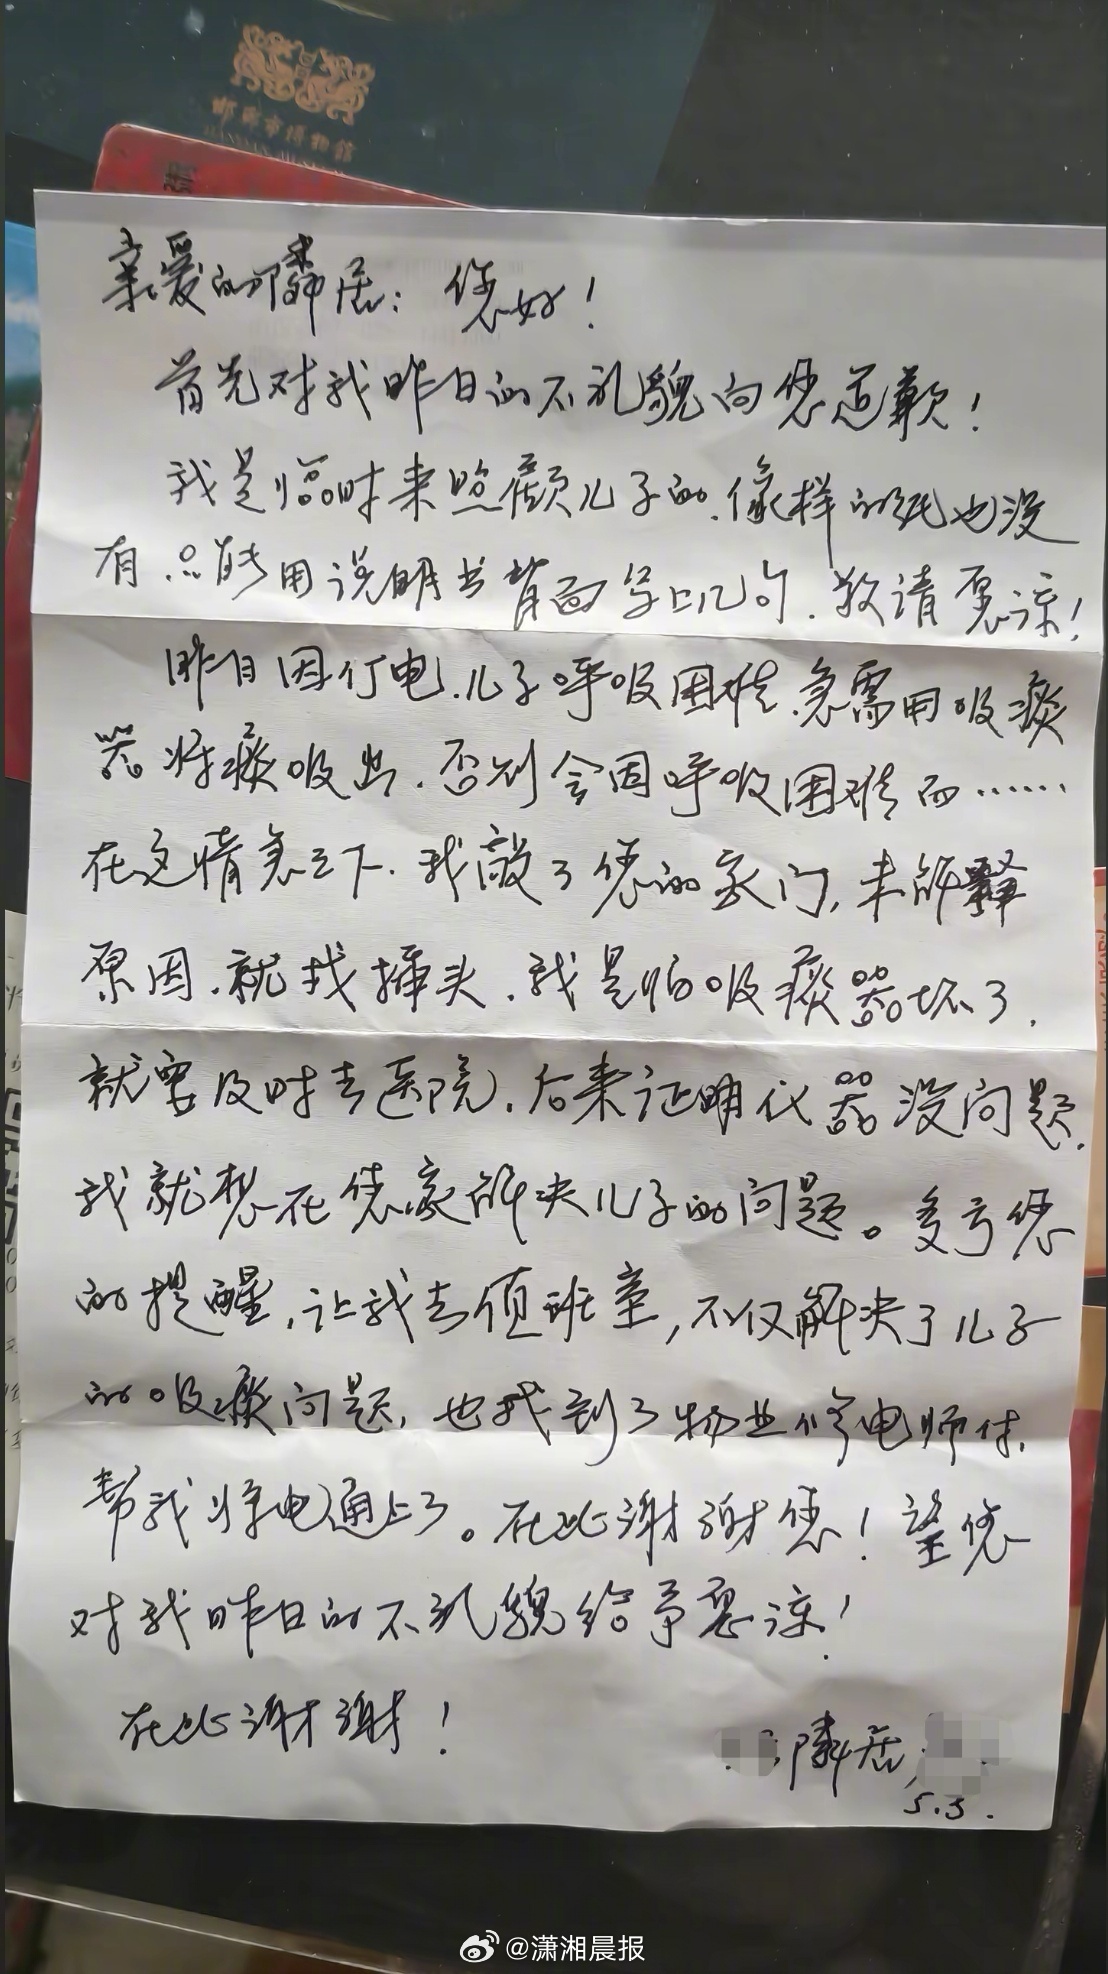 邯郸市博物馆
亲爱的隣居：您好！
首先对我昨日的不礼貌向您道歉！
我是临时来照顾儿子的.像样的纸也没
有.只能用说明书背面写上几句.敬请原谅！
昨日因停电.儿子呼吸困难.急需用吸痰
器将痰吸出.否则会因呼吸困难而……
在这情急之下.我敲了您的家门,未解释
原因.就找插头.我是怕吸痰器坏了.
就要及时去医院.后来证明仪器没问题.
我就想在您家解决儿子的问题。多亏您
的提醒,让我去值班室,不仅解决了儿子
的吸痰问题,也找到了物业修电师付.
帮我将电通上了。在此谢谢您！望您
对我昨日的不礼貌给予原谅！
在此谢谢！
隣居
5.3.
@潇湘晨报